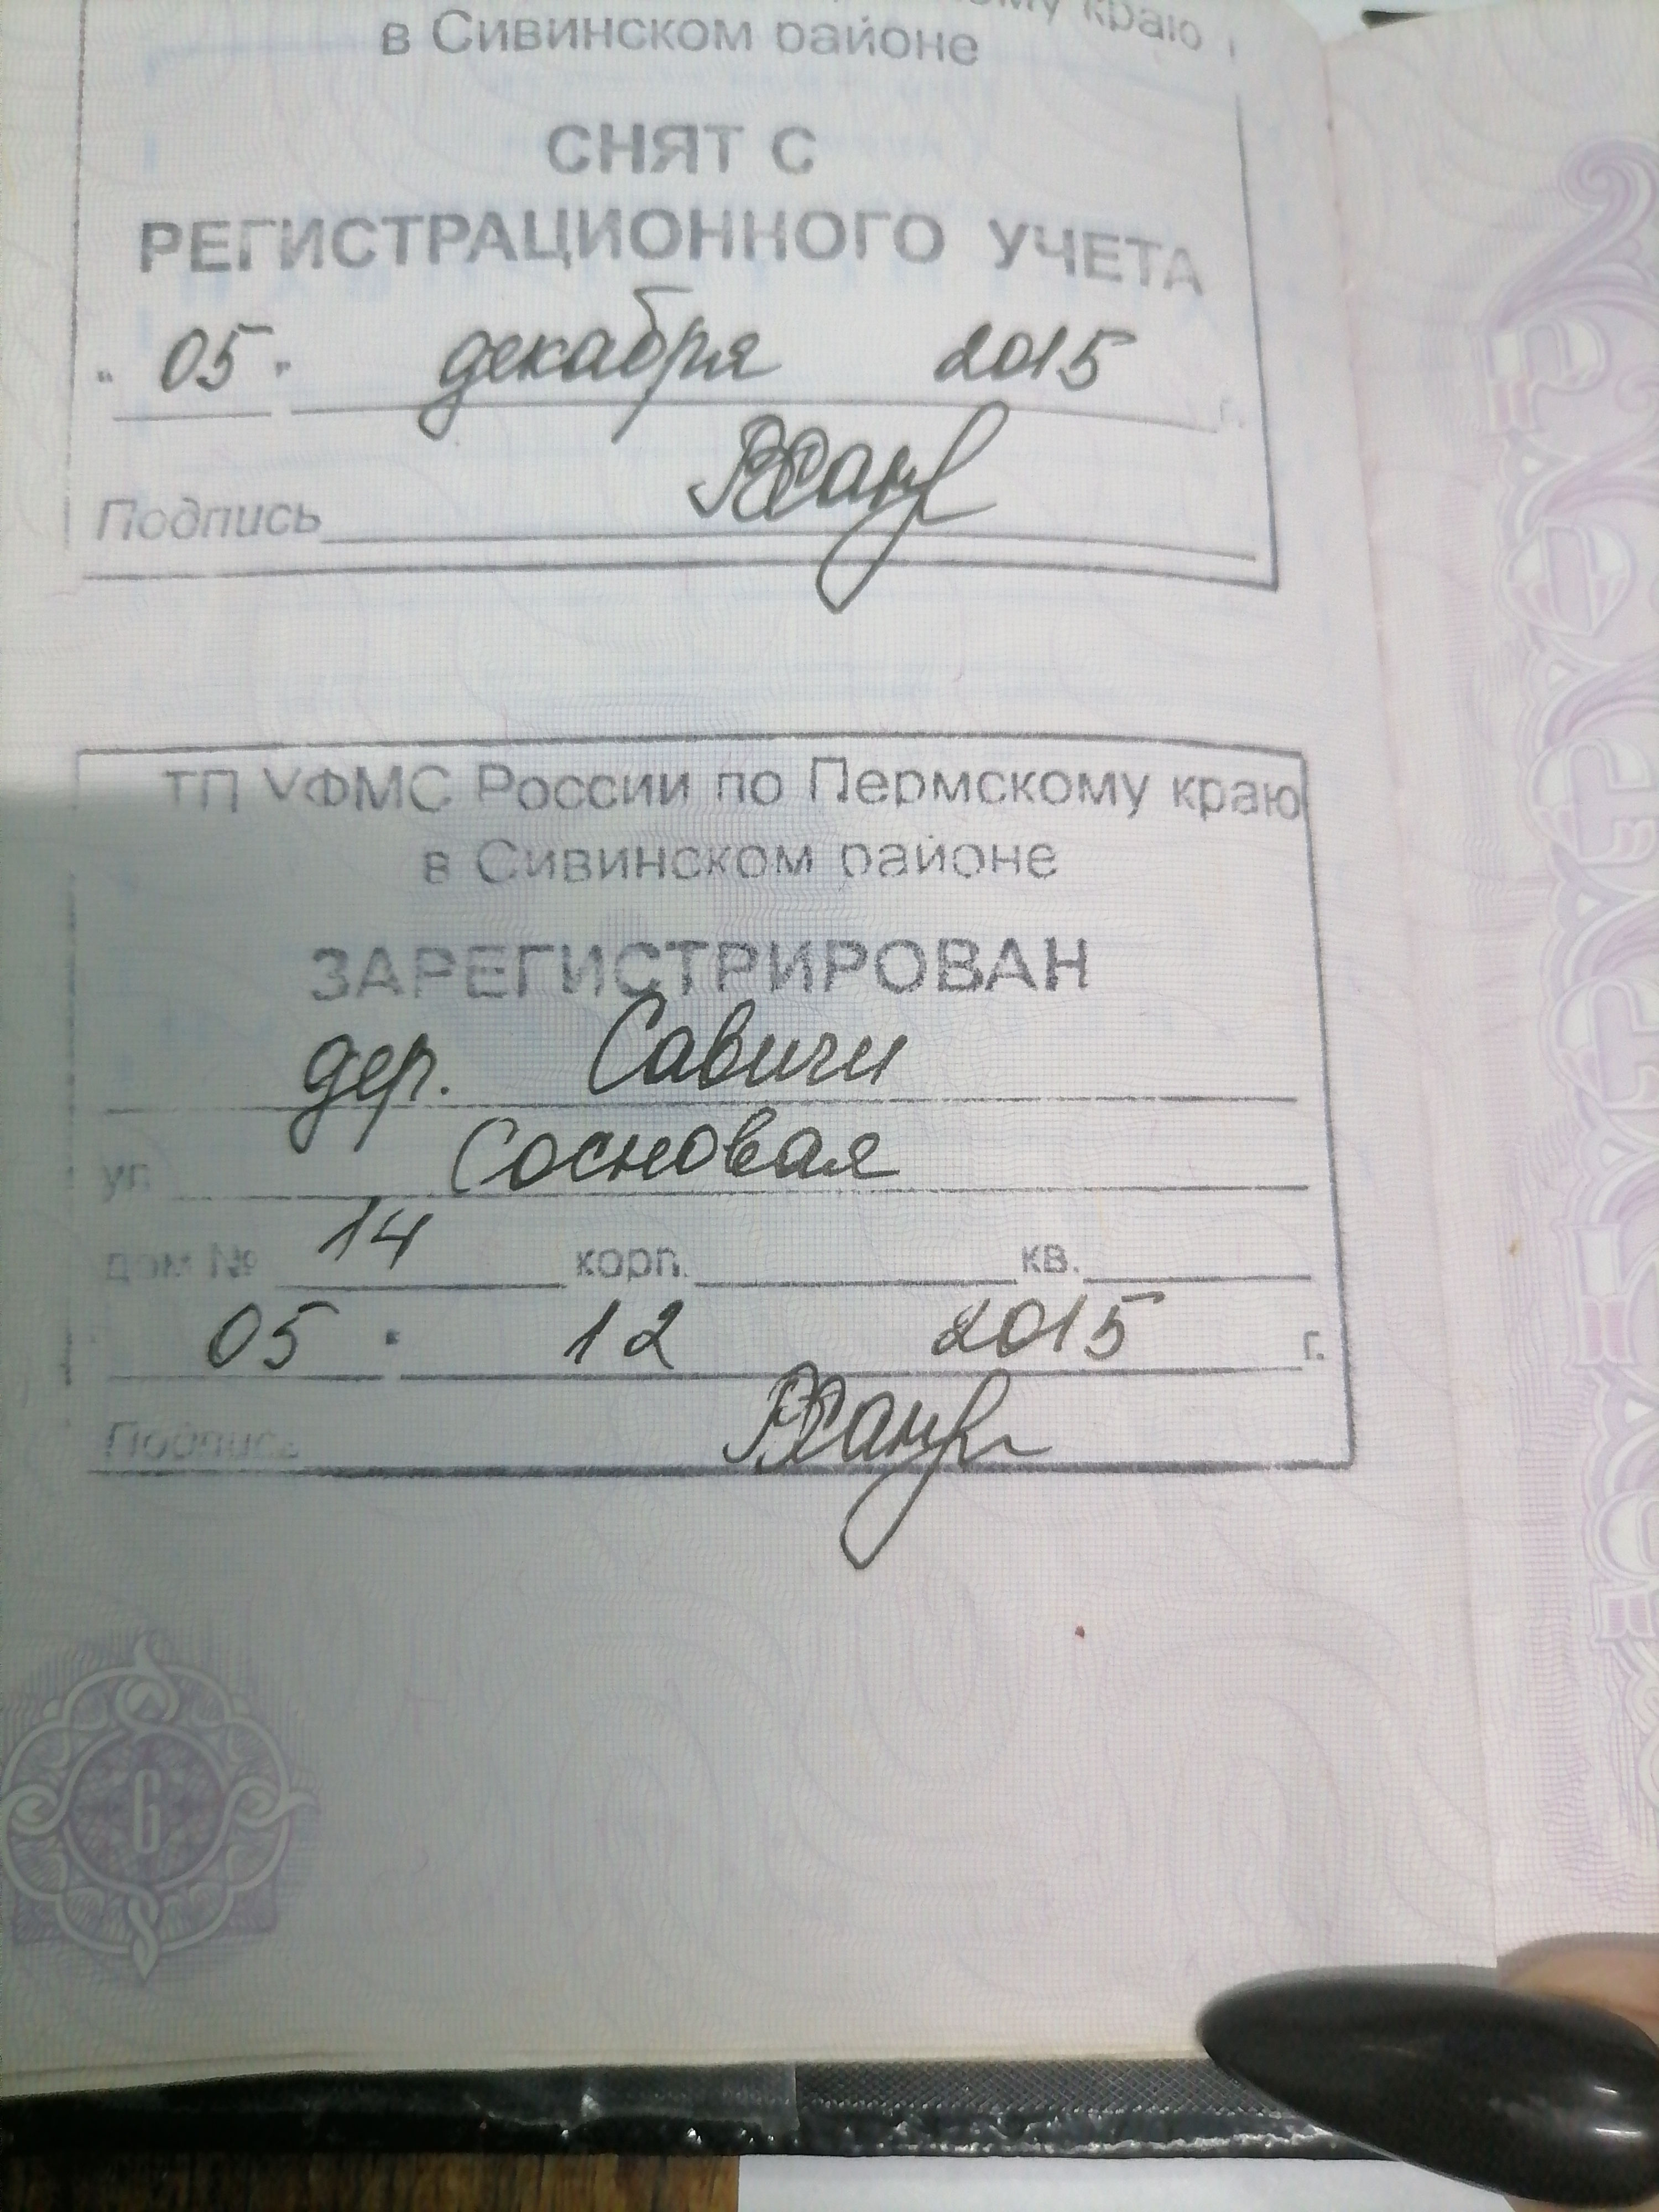 краю
в Сивинском районе
СНЯТ С
РЕГИСТРАЦИОННОГО УЧЕТА
" 05 " декабря 2015 г.
Подпись
ТП УФМС России по Пермскому краю
в Сивинском районе
ЗАРЕГИСТРИРОВАН
дер. Савичи
ул. Сосновая
дом № 14 корп. кв.
05 " 12 2015 г.
Подпись
6